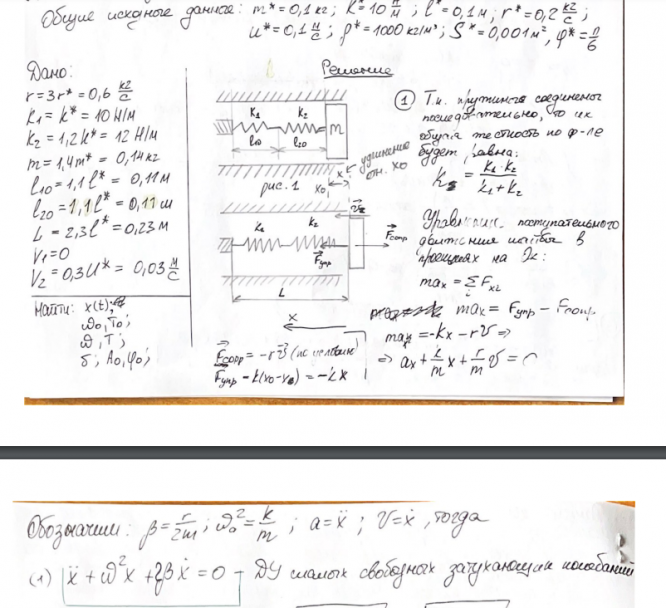 Общие исходные данные: m* = 0,1 кг; k* = 10 Н/м; l* = 0,1 м; r* = 0,2 кг/с;
u* = 0,1 м/с; ρ* = 1000 кг/м³; S* = 0,001 м², φ* = π/6
Дано:
r = 3r* = 0,6 кг/с
k₁ = k* = 10 Н/м
k₂ = 1,2k* = 12 Н/м
m = 1,4m* = 0,14 кг
l₁₀ = 1,1l* = 0,11 м
l₂₀ = 1,1l* = 0,11 м
L = 2,3l* = 0,23 м
V₁ = 0
V₂ = 0,3U* = 0,03 м/с
Найти: x(t);
ω₀, T₀;
ω, T;
δ; A₀, φ₀;
Решение
k₁ k₂ m
l₁₀ l₂₀
рис. 1
x₀ x удлинение
отн. x₀
k₁ k₂ v₂
Fупр Fсопр
L
x
Fсопр = -rv
Fупр - k(x₀-x₀) = -kx
① Т.к. пружины соединены
последовательно, то их
общая жесткость по ф-ле
будет равна:
k = k₁·k₂/(k₁+k₂)
Уравнение поступательного
движения в
проекциях на Ox:
maₓ = ΣFₓᵢ
maₓ = Fупр - Fсопр
maₓ = -kx - rv ⇒
⇒ aₓ + k/m x + r/m v = 0
Обозначим: β = r/2m; ω₀² = k/m; a = ẍ; V = ẋ, тогда
(1) ẍ + ω²x + 2βẋ = 0 - ДУ малых свободных затухающих колебаний